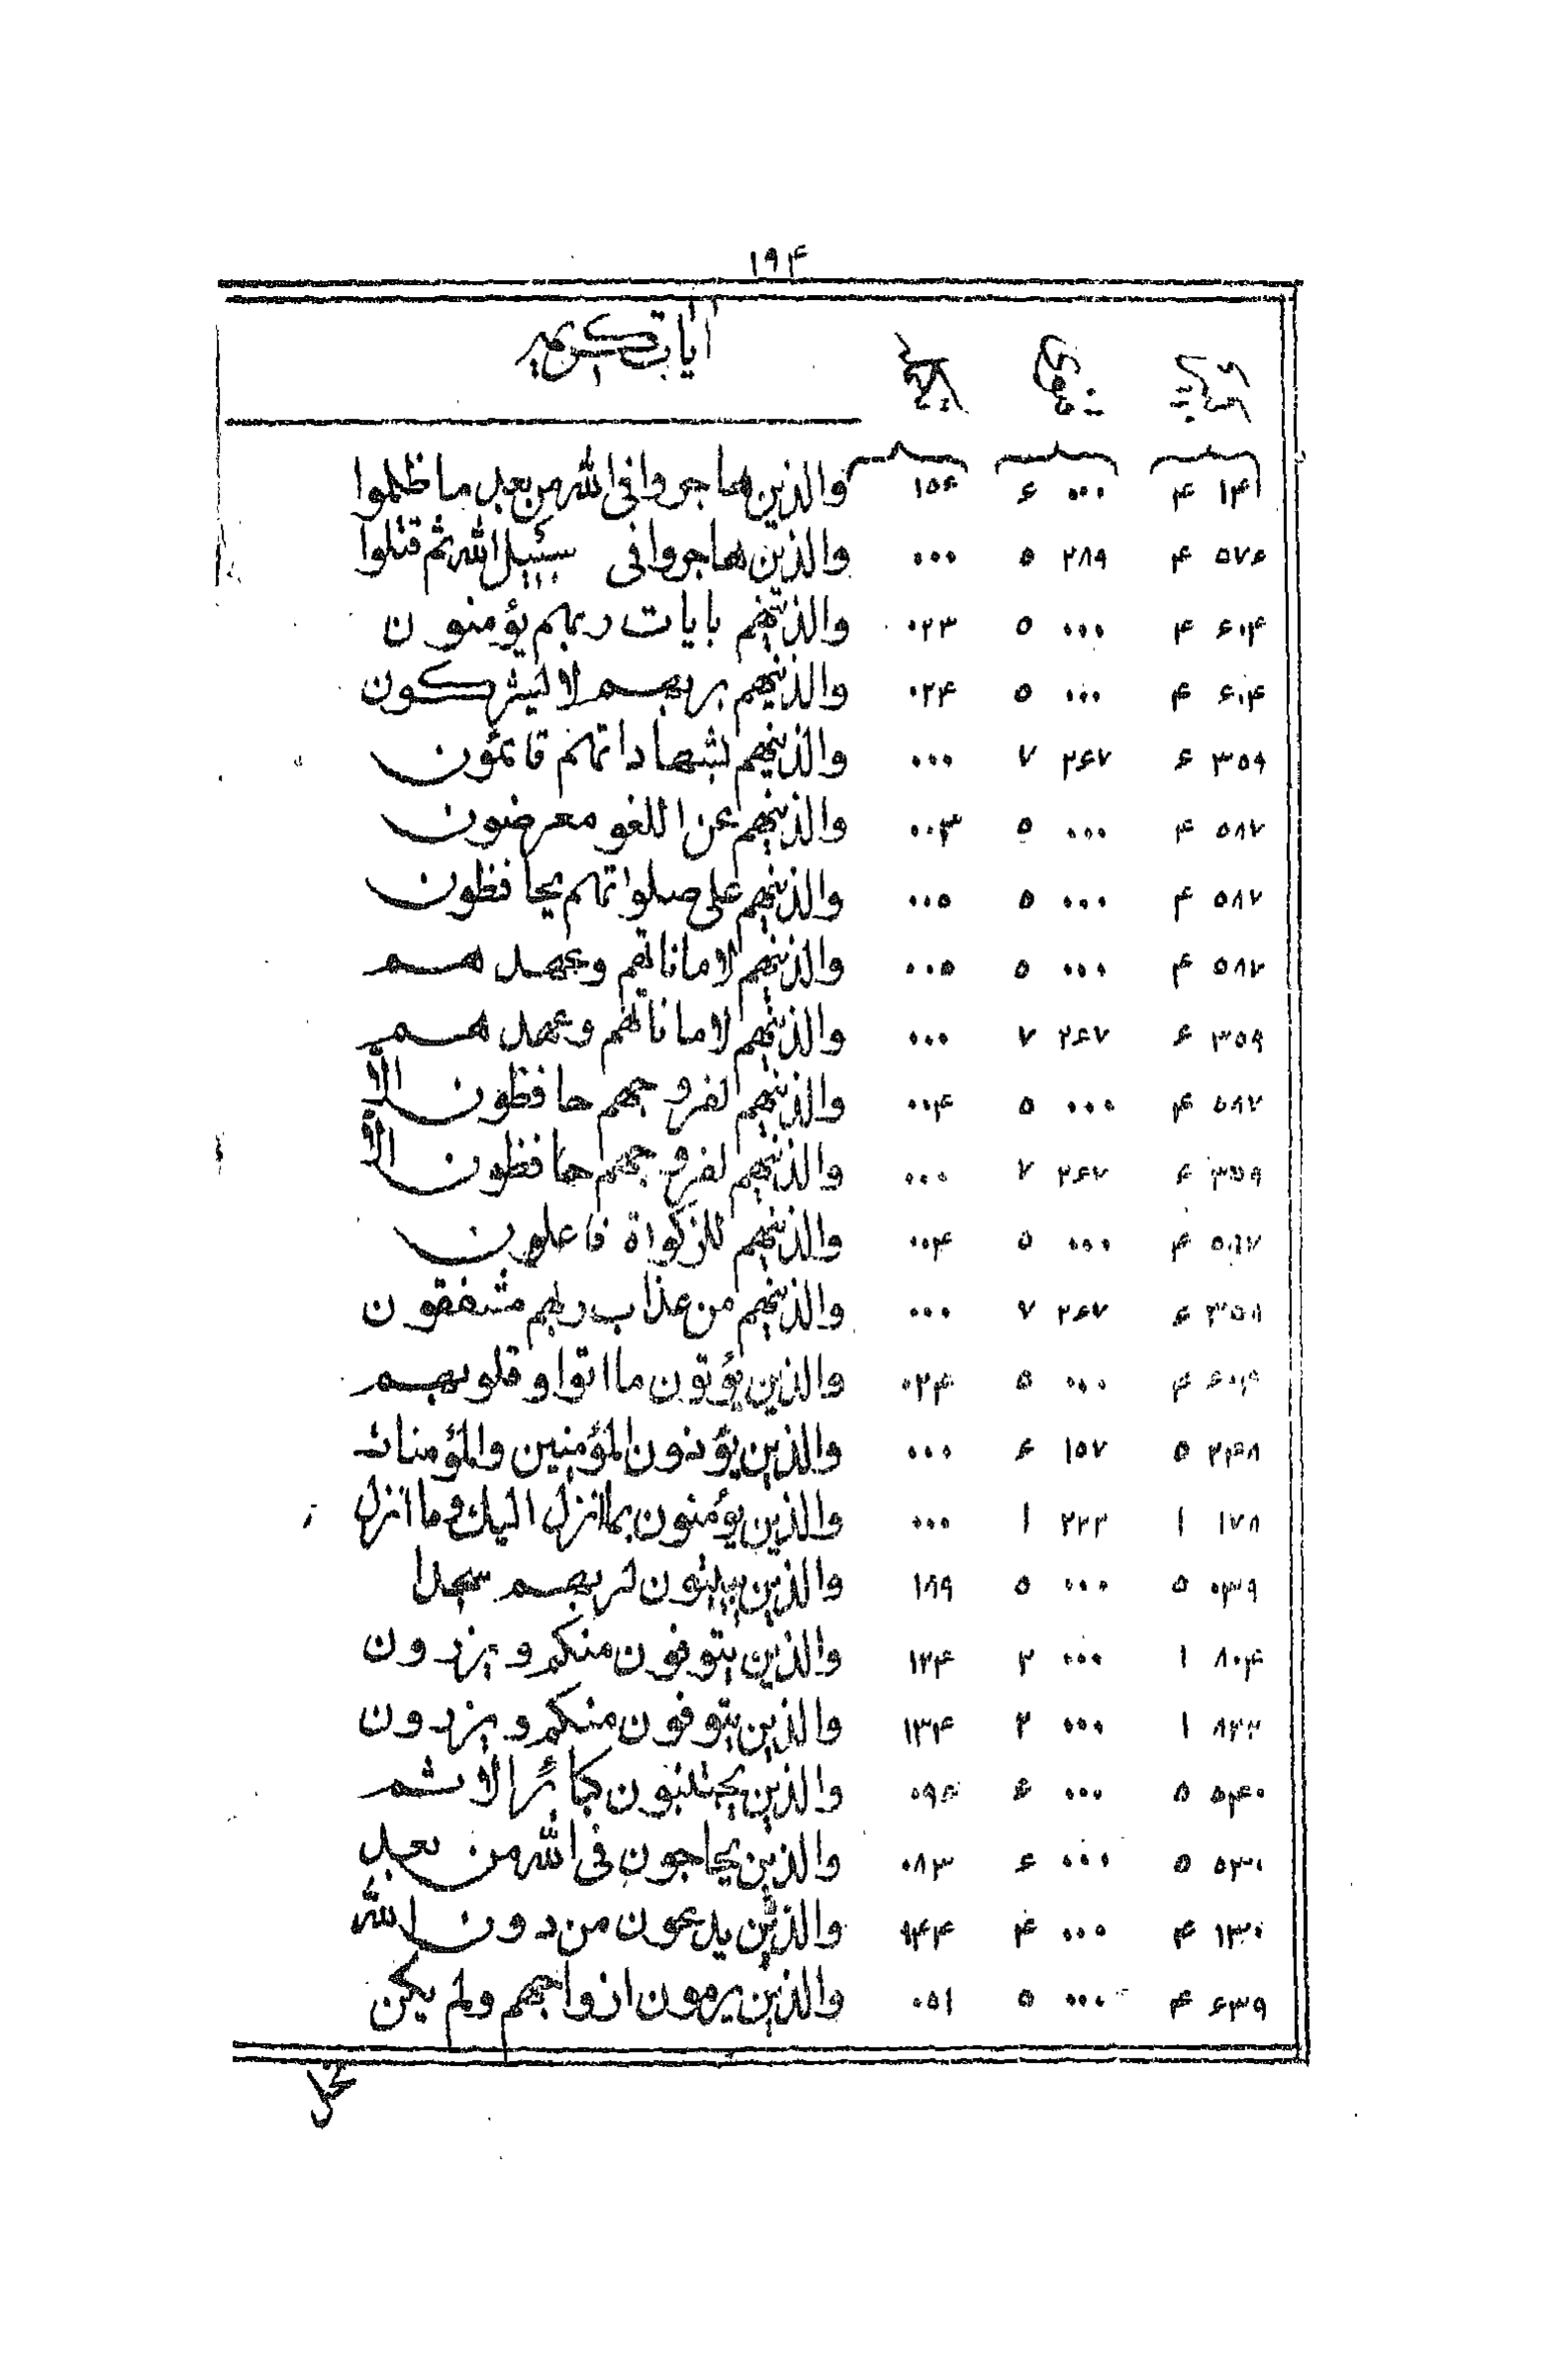 ۱۹۴
آیات کریمه
۱۴۱ ۴ ۰۰۰ ۶ ۱۵۶ والذین هاجروا فی الله من بعد ما ظلموا
۵۷۶ ۴ ۲۸۹ ۵ ۰۰۰ والذین هاجروا فی سبیل الله ثم قتلوا
۶۰۴ ۴ ۰۰۰ ۵ ۰۲۳ والذینهم بایات ربهم یؤمنون
۶۰۴ ۴ ۰۰۰ ۵ ۰۲۴ والذینهم بربهم لا یشرکون
۳۵۹ ۶ ۲۶۷ ۷ ۰۰۰ والذینهم بشهاداتهم قائمون
۵۸۷ ۴ ۰۰۰ ۵ ۰۰۳ والذینهم عن اللغو معرضون
۵۸۷ ۴ ۰۰۰ ۵ ۰۰۵ والذینهم علی صلواتهم یحافظون
۵۸۷ ۴ ۰۰۰ ۵ ۰۰۵ والذینهم لاماناتهم وعهدهم
۳۵۹ ۶ ۲۶۷ ۷ ۰۰۰ والذینهم لاماناتهم وعهدهم
۵۸۷ ۴ ۰۰۰ ۵ ۰۰۴ والذینهم لفروجهم حافظون الا
۳۵۹ ۶ ۲۶۷ ۷ ۰۰۰ والذینهم لفروجهم حافظون الا
۵۸۷ ۴ ۰۰۰ ۵ ۰۰۴ والذینهم للزکواة فاعلون
۳۵۸ ۶ ۲۶۷ ۷ ۰۰۰ والذینهم من عذاب ربهم مشفقون
۶۰۴ ۴ ۰۰۰ ۵ ۰۲۴ والذین یؤتون ما اتوا وقلوبهم
۲۴۸ ۵ ۱۵۷ ۶ ۰۰۰ والذین یؤذون المؤمنین والمؤمنات
۱۷۸ ۱ ۲۲۳ ۱ ۰۰۰ والذین یؤمنون بما انزل الیک وما انزل
۰۳۹ ۵ ۰۰۰ ۵ ۱۸۹ والذین یبیتون لربهم سجدا
۸۰۴ ۱ ۰۰۰ ۲ ۱۲۴ والذین یتوفون منکم ویذرون
۸۲۲ ۱ ۰۰۰ ۲ ۱۳۴ والذین یتوفون منکم ویذرون
۵۴۰ ۵ ۰۰۰ ۶ والذین یجتنبون کبائر الاثم
۵۳۰ ۵ ۰۰۰ ۶ ۰۸۳ والذین یحاجون فی الله من بعد
۱۳۰ ۴ ۰۰۰ ۴ ۱۴۴ والذین یدعون من دون الله
۶۳۹ ۴ ۰۰۰ ۵ ۰۵۱ والذین یرمون ازواجهم ولم یکن